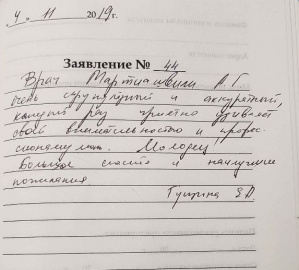 4. 11 2019г.
Заявление № 44
Врач Мартиашвили Л. Г.
очень скрупулезный и аккуратный,
каждый раз приятно удивляет
своей внимательностью и профес-
сионализмом. Молодец
Большое спасибо и наилучшие
пожелания.
Гущина З.П.